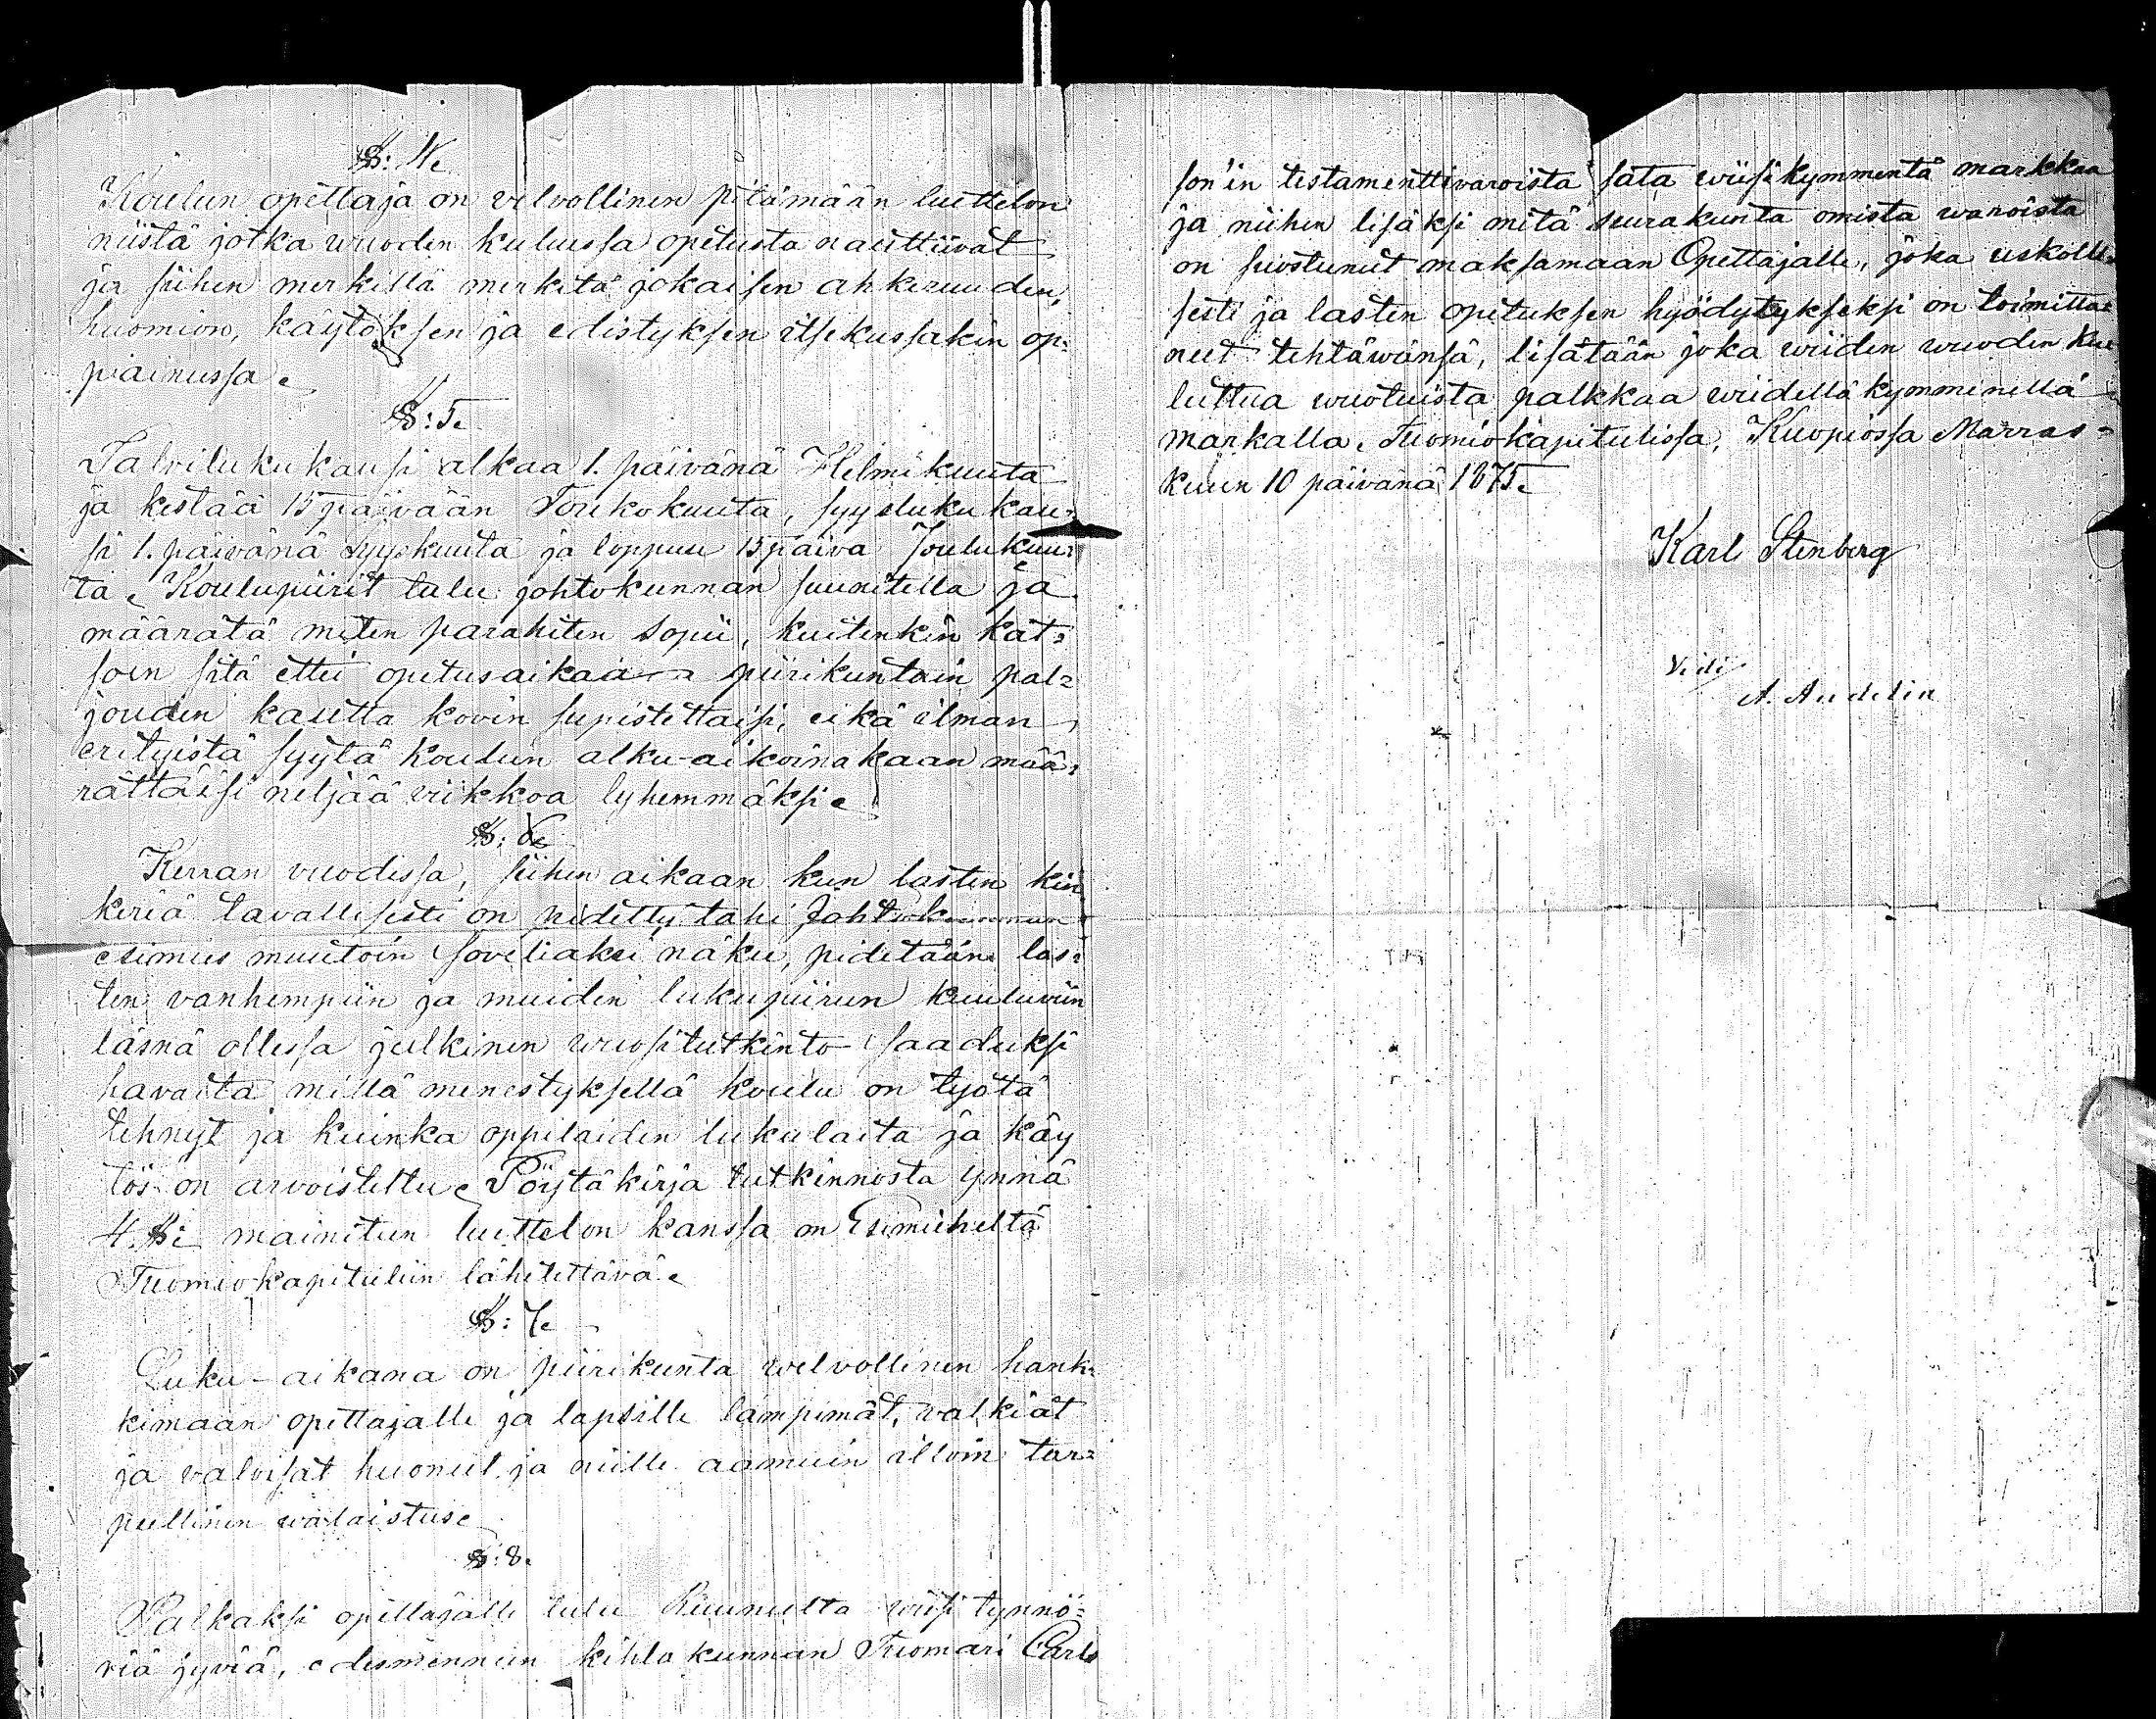 §: 4.
Koulun opettaja on velvollinen pitämään luettelon
niistä jotka wuoden kuluessa opetusta nauttiivat
ja siihen merkillä merkitä jokaisen ahkeruuden,
huomion, käytöksen ja edistyksen itsekussakin op=
piainussa.
§: 5.
Talvilukukausi alkaa 1. päivänä Helmikuuta
ja kestää 15 päivään Toukokuuta, syyslukukau=
si 1. päivänä Syyskuuta ja loppuu 15 päivä Joulukuu=
ta. Koulupiirit tulee johtokunnan suunitella ja
määrätä miten parahiten sopii, kuitenkin kat=
soen sitä ettei opetusaikaa piirikuntain pal=
jouden kautta kovin supistettaisi, eikä ilman
erityistä syytä koulun alku-aikoinakaan mää=
rättäisi neljää viikkoa lyhemmäksi.
§: 6.
Kerran vuodessa, siihen aikaan kun lasten kin
keriä tavallisesti on pidetty tahi Johtokunnan
esimies muutoin soveliaksi näkee, pidetään las=
ten vanhempiin ja muiden lukupiiriin kuuluviin
läsnä ollessa julkinen wuositutkinto saaduksi
havaita millä menestyksellä koulu on työtä
tehnyt ja kuinka oppilaiden lukulaita ja käy
tös on arvoisteltu. Pöytäkirja tutkinnosta ynnä
4. §: mainitun luettelon kanssa on Esimieheltä
Tuomiokapituliin lähetettävä.
§: 7.
Luku-aikana on piirikunta welvollinen hank=
kimaan opettajalle ja lapsille lämpimät, valkiat
ja valoisat huoneet ja niille aamuin illoin tar=
peellinen walaistus.
§: 8.
Palkaksi opettajalle tulee Kruunulta wiisi tynnö=
riä jyviä, edesmenneen kihlakunnan Tuomari Carls
son'in testamenttivaroista sata wiisikymmentä markkaa
ja niihen lisäksi mitä seurakunta omista waroista
on suostunut maksamaan Opettajalle, joka uskolli=
sesti ja lasten opetuksen hyödytykseksi on toimitta=
nut tehtäwänsä, lisätään joka wiiden wuoden ku
luttua wuotuista palkkaa wiidellä kymmenellä
markalla. Tuomiokapitulissa, Kuopiossa Marras=
kuun 10 päivänä 1875.
Karl Stenberg
Vidi
A. Andelin